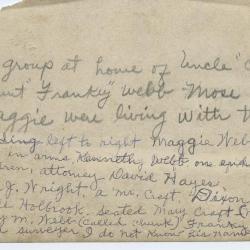 group at home of Uncle "
unt" Franky" Webb - Mose
aggie were living with
ding left to right Maggie Web
in arms, Kenneth Webb on end
ren, attorney David Hayes
J. Wright, a Mr. Croft, Dixon
Holbrook. seated Mary Croft
y M. Webb (Called "Aunt" Frank
surveyor I do not know his name